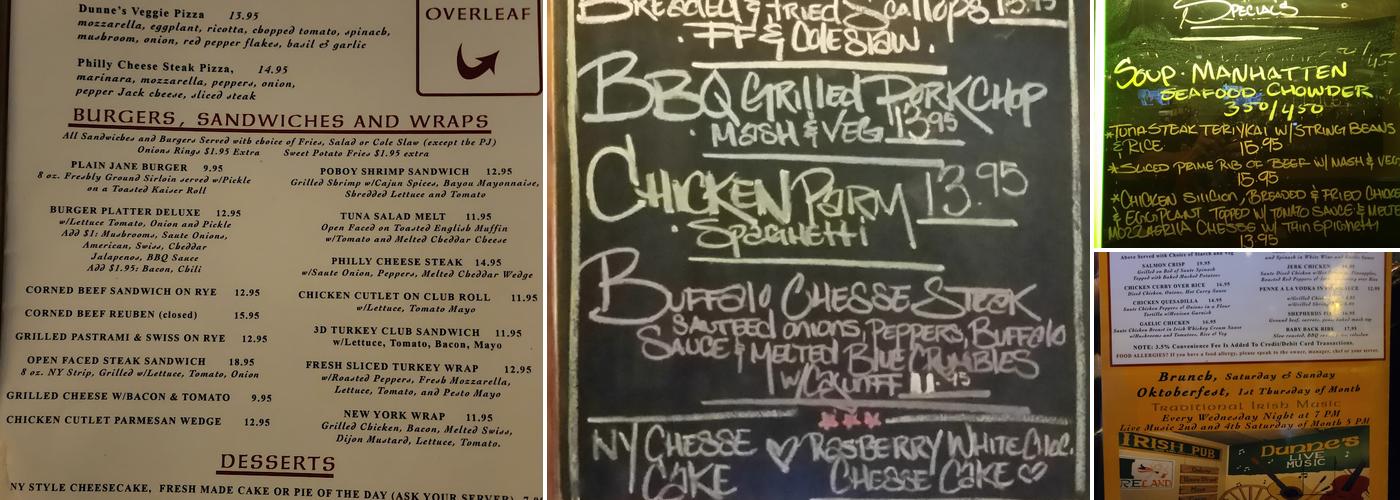 Dunne's Veggie Pizza 13.95
mozzarella, eggplant, ricotta, chopped tomato, spinach,
mushroom, onion, red pepper flakes, basil & garlic
Philly Cheese Steak Pizza, 14.95
marinara, mozzarella, peppers, onion,
pepper Jack cheese, sliced steak
OVERLEAF
BURGERS, SANDWICHES AND WRAPS
All Sandwiches and Burgers Served with choice of Fries, Salad or Cole Slaw (except the PJ)
Onions Rings $1.95 Extra Sweet Potato Fries $1.95 extra
PLAIN JANE BURGER 9.95
8 oz. Freshly Ground Sirloin served w/Pickle
on a Toasted Kaiser Roll
BURGER PLATTER DELUXE 12.95
w/Lettuce, Tomato, Onion and Pickle
Add $1: Mushrooms, Saute Onions,
American, Swiss, Cheddar
Jalapenos, BBQ Sauce
Add $1.95: Bacon, Chili
CORNED BEEF SANDWICH ON RYE 12.95
CORNED BEEF REUBEN (closed) 15.95
GRILLED PASTRAMI & SWISS ON RYE 12.95
OPEN FACED STEAK SANDWICH 18.95
8 oz. NY Strip, Grilled w/Lettuce, Tomato, Onion
GRILLED CHEESE W/BACON & TOMATO 9.95
CHICKEN CUTLET PARMESAN WEDGE 12.95
POBOY SHRIMP SANDWICH 12.95
Grilled Shrimp w/Cajun Spices, Bayou Mayonnaise,
Shredded Lettuce and Tomato
TUNA SALAD MELT 11.95
Open Faced on Toasted English Muffin
w/Tomato and Melted Cheddar Cheese
PHILLY CHEESE STEAK 14.95
w/Saute Onion, Peppers, Melted Cheddar Wedge
CHICKEN CUTLET ON CLUB ROLL 11.95
w/Lettuce, Tomato Mayo
3D TURKEY CLUB SANDWICH 11.95
w/Lettuce, Tomato, Bacon, Mayo
FRESH SLICED TURKEY WRAP 12.95
w/Roasted Peppers, Fresh Mozzarella,
Lettuce, Tomato, and Pesto Mayo
NEW YORK WRAP 11.95
Grilled Chicken, Bacon, Melted Swiss,
Dijon Mustard, Lettuce, Tomato.
DESSERTS
NY STYLE CHEESECAKE, FRESH MADE CAKE OR PIE OF THE DAY (ASK YOUR SERVER)
Breaded & Fried Scallops 15.95
FF & Coleslaw.
BBQ Grilled PorkChop
Mash & Veg 13.95
Chicken Parm 13.95
Spaghetti
Buffalo Chesse Steak
Sauteed onions, Peppers, Buffalo
Sauce & Melted Blue Crumbles
NY Chesse
Cake
Rasberry White Choc.
Chesse Cake
Specials
Soup. Manhatten
Seafood Chowder
350/450
*Tuna Steak Teriykai w/ String Beans
& Rice 15.95
*Sliced Prime Rib of Beef w/ Mash & Veg
15.95
*Chicken Silicion, Breaded & Fried Chicken
& Eggplant Topped w/ Tomato Sauce & Melted
Mozzaerlla Chesse w/ Thin Spighetti
13.95
Above Served with Choice of Starch and Veg
SALMON CRISP 19.95
Grilled on Bed of Saute Spinach
Topped with Baked Mashed Potatoes
CHICKEN CURRY OVER RICE 16.95
Diced Chicken, Onions, Hot Curry Sauce
CHICKEN QUESADILLA 14.95
Saute Chicken Peppers & Onions in a Flour
Tortilla w/Mexican Garnish
GAELIC CHICKEN 16.95
Saute Chicken Breast in Irish Whiskey Cream Sauce
w/Mushrooms and Tomatoes, Rice & Veg
and Spinach in White Wine and Garlic Sauce
JERK CHICKEN
PENNE A LA VODKA
SHEPHERDS
BABY BACK RIBS 17.95
NOTE: 3.5% Convenience Fee Is Added To Credit/Debit Card Transactions.
FOOD ALLERGIES? If you have a food allergy, please speak to the owner, manager, chef or your server.
Brunch, Saturday & Sunday
Oktoberfest, 1st Thursday of Month
Traditional Irish Music
Every Wednesday Night at 7 PM
Live Music 2nd and 4th Saturday of Month 5 PM
IRISH PUB
Dunne's
LIVE
MUSIC